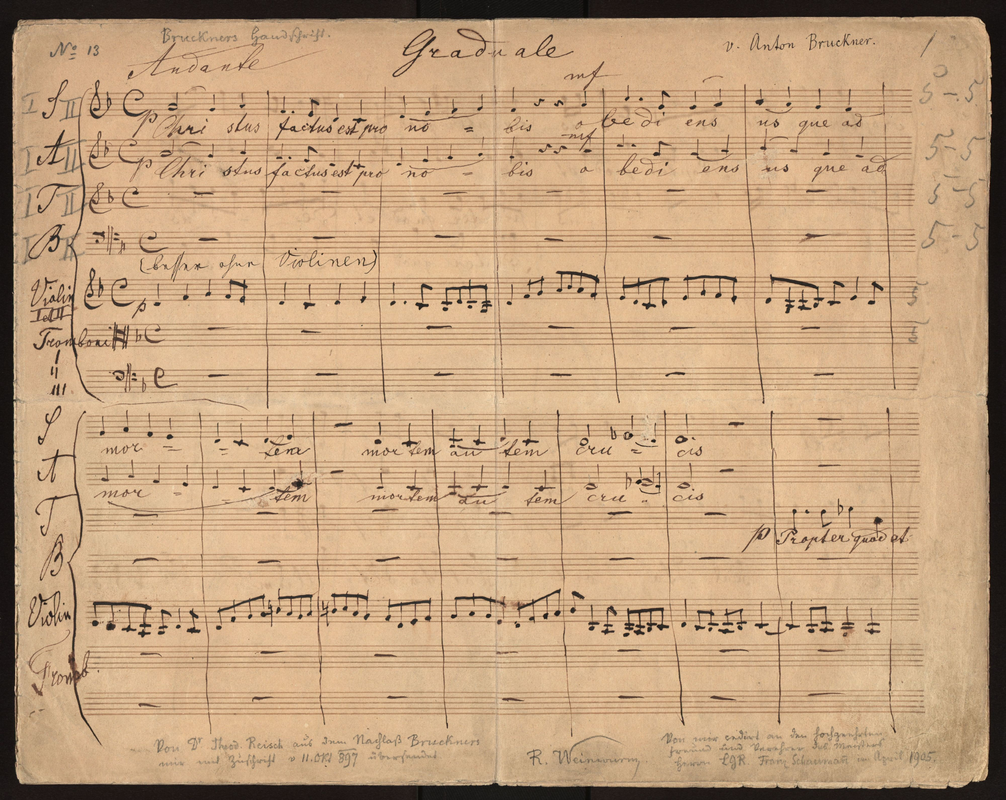 No 13
Bruckners Handschrift.
Graduale
v. Anton Bruckner.
1
Andante
mf
S
p Chri stus factus est pro no = bis o be di ens us que ad
mf
A
p Chri stus factus est pro no - bis o bedi ens us que ad
T
B
(besser ohne Violinen)
Violin
I et II
p
Tromboni
I
II
III
S
mor = tem mor tem au tem cru = cis
A
mor = tem mortem au tem cru - cis
T
p Propter quod et
B
Violin
Tromb.
Von Dr Theod. Reisch aus dem Nachlaß Bruckners
mir mit Zuschrift v 11. Okt 897 übersendet
R. Weinwurm
Von mir cedirt an den hochgeehrten
Freund und Verehrer des Meisters
Herrn Franz Schaumann im April 1905.